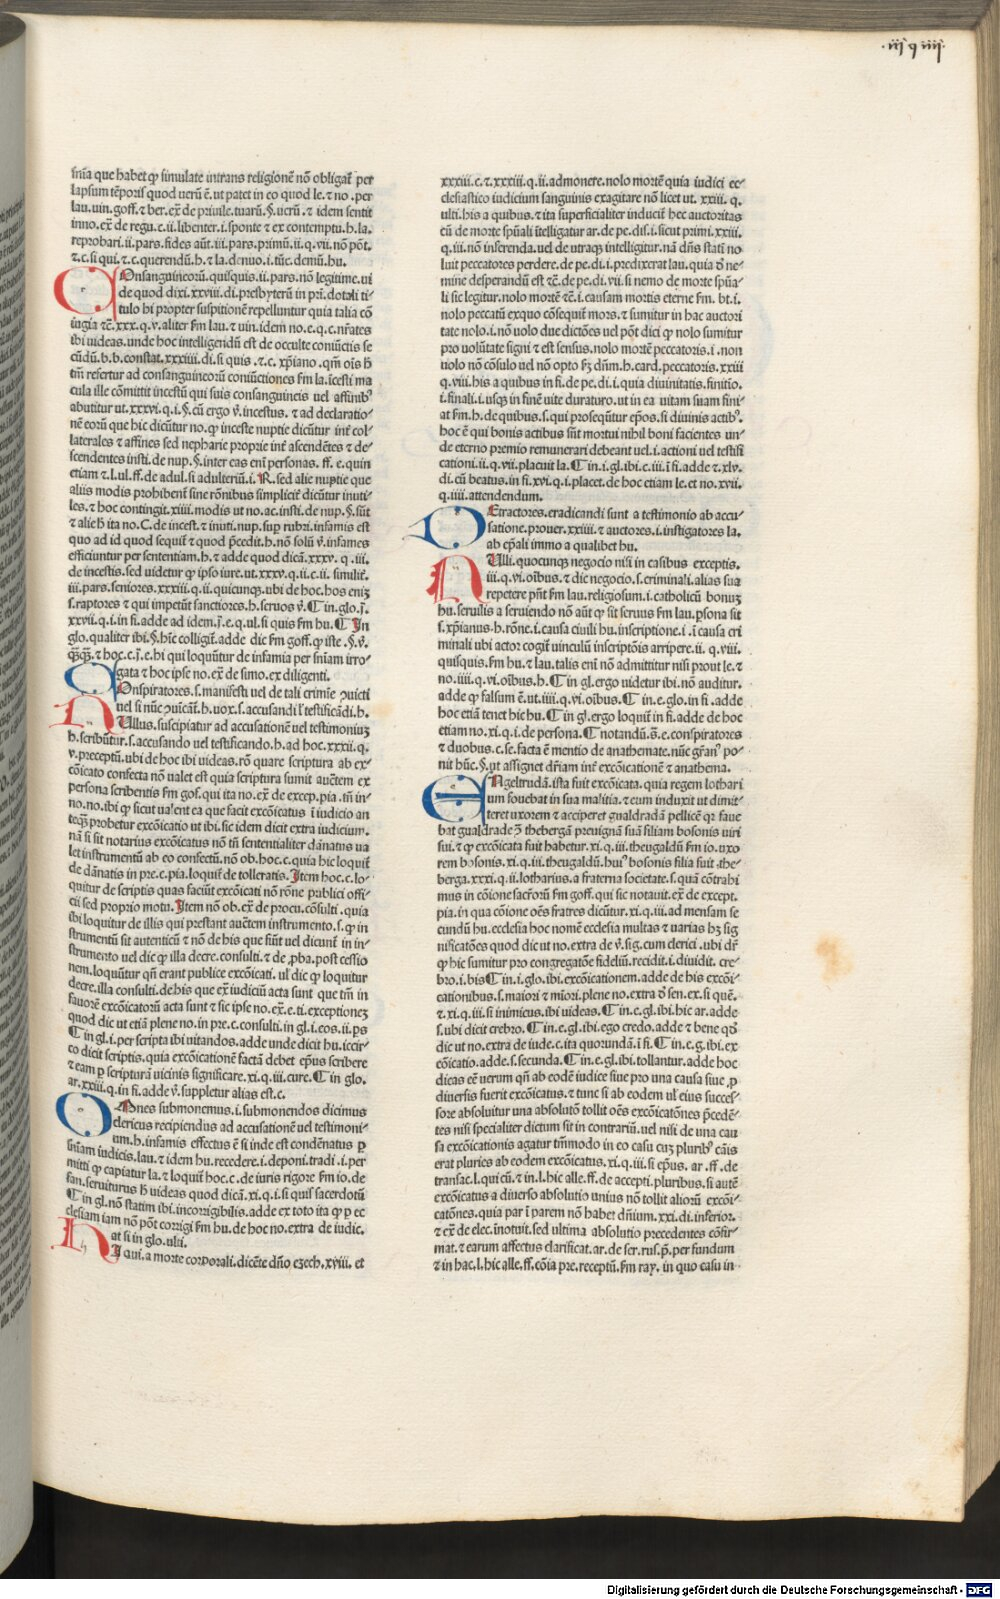 ·iij q iiij·
sniā que habet ꝙ simulate intrans religionē nō obligat̄ per
lapsum tēporis quod uerū ē. ut patet in eo quod le. ⁊ no . per
lau. uin. goff. ⁊ ber. ex̄ de priuile. tuarū. §. uerū . ⁊ idem sentit
inno. ex̄ de regu. c. ii. libenter. i. sponte ⁊ ex contemptu. h. la.
reprobari. ii. pars. fides aūt. iii. pars. primū. ii. q. vii. nō pōt.
⁊. c. si qui. ⁊. c. querendū. h. ⁊ la. denuo. i. tūc. demū. hu.
COnsanguineorū. quisquis. ii. pars. nō legitime. ui
de quod dixi. xxviii. di. presbyterū in pri. dotali ti⸗
tulo hi propter suspitionē repelluntur quia talia cō
iugia ⁊c̄. xxx. q. v. aliter ẜm lau. ⁊ uin. idem no. c. q. c. nr̄ates
ibi uideas. unde hoc intelligendū est de occulte coniūctis se
cūdū. b. b. constat. xxxiiii. di. si quis . ⁊. c. xp̄iano . qm̄ oīs h̄
tm̄ refertur ad consanguineorū coniūctiones ẜm la. īcesti ma
cula ille cōmittit incestū qui suis consanguineis uel affinib⁹
abutitur ut. xxxvi. q. i. §. cū ergo v̄. incestus. ⁊ ad declaratio⸗
nē eorū que hic dicūtur no. ꝙ inceste nuptie dicūtur int̄ col⸗
laterales ⁊ affines sed nepharie proprie int̄ ascendētes ⁊ de⸗
scendentes insti. de nup. §. inter eas eni personas. ff. e. quin
etiam ⁊. l. ul. ff. de adul. si adulteriū. i. R. sed alie nuptie que
aliis modis prohibent̄ sine rōnibus simplicit̄ dicūtur inuti⸗
les. ⁊ hoc contingit. xiiii. modis ut no. ac. insti. de nup. §. sūt
⁊ alie h̄ ita no. C. de incest. ⁊ inuti. nup. sup rubri. infamis est
quo ad id quod sequit̄ ⁊ quod p̄cedit. h. nō solū v̄. infames
efficiuntur per sententiam. h. ⁊ adde quod dicā. xxxv. q . iii.
de incestis. sed uidetur ꝙ ipso iure. ut. xxxv. q. ii. c. ii. similit̄.
iii. pars. seniores. xxxiii. q. ii. quicunqꝫ. ubi de hoc. hos enīꝫ
s. raptores ⁊ qui impetūt sanctiores. h. seruos v̄. ¶ in. glo. j̄.
xxvii. q. i. in fi. adde ad idem. j̄. e. q. ul. si quis ẜm hu. ¶ In
glo. qualiter ibi. §. hīc colligit̄. adde dic ẜm goff. ꝙ iste . §. v̄.
qꝫqꝫ. ⁊ hoc. c. j̄. e. hi qui loquūtur de infamia per sniam irro⸗
gata ⁊ hoc ipse no. ex̄ de simo. ex diligenti.
COnspiratores. s. manifesti uel de tali crimīe ꝯuicti
uel si nūc ꝯuicāt̄. h. uox. s. accusandi ł testificādi. h.
NUllus. suscipiatur ad accusationē uel testimoniuꝫ
h. scribūtur. s. accusando uel testificando. h. ad hoc. xxxii. q.
v. preceptū. ubi de hoc ibi uideas. rō quare scriptura ab ex⸗
cōicato confecta nō ualet est quia scriptura sumit auctē̄ ex
persona scribentis ẜm gof. qui ita no. ex̄ de excep. pia . tn̄ in⸗
no. no. ibi ꝙ sicut ualent ea que facit excōicatus ī iudicio an
teqꝫ probetur excōicatio ut ibi. sic idem dicit extra iudicium.
nā si sit notarius excōicatus nō tn̄ sententialiter dānatus ua
let instrumentū ab eo confectū. nō ob. hoc. c. quia hic loquit̄
de dānatis in pre. c. pia. loquit̄ de tolleratis. Item hoc. c. lo⸗
quitur de scriptis quas faciūt excōicati nō rōne publici offi⸗
cii sed proprio motu. Item nō ob. ex̄ de procu. cōsulti . quia
ibi loquitur de illis qui prestant auctē̄ instrumento. s. ꝙ in
strumentū sit autenticū ⁊ nō de his que siūt uel dicunt̄ in in⸗
strumento uel dic ꝙ illa decre. consulti. ⁊ de ꝓba. post cessio
nem. loquūtur qn̄ erant publice excōicati. ul̄ dic ꝙ loquitur
decre. illa consulti. de his que ex̄ iudiciū acta sunt que tm̄ in
fauorē excōicatorū acta sunt ⁊ sic ipse no. ex̄. e. ti. exceptionez
quod dic ut etiā plene no. in pre. c. consulti. in gl. i. eos. ii. ps
¶ in gl. i. per scripta ibi uitandos. adde unde dicit hu. iccir⸗
co dicit scriptis. quia excōicationē factā debet ep̄us scribere
⁊ eam ꝑ scripturā uicinis significare. xi. q. iii. cure. ¶ in glo.
ar. xxiii. q. in fi. adde v̄. suppletur alias est. c.
OMnes submonemus. i. submonendos dicimus
clericus recipiendus ad accusationē uel testimoni⸗
um. h. infamis effectus ē si inde est condēnatus ꝑ
sniam iudicis. lau. ⁊ idem hu. recedere. i. deponi. tradi . i. per
mitti ꝙ capiatur la. ⁊ loquit̄ hoc. c. de iuris rigore ẜm io. de
fan. seruiturus h̄ uideas quod dicā. xi. q. i. si quis sacerdotū
¶ in gl. nō statim ibi. incorrigibilis. adde ex toto ita ꝙ ꝑ ec
clesiam iam nō pōt corrigi ẜm hu. de hoc no. extra de iudic.
at si in glo. ulti.
NI qui. a morte corporali. dicēte dn̄o ezech. xviii. et
xxxiii. c. ⁊. xxxiii. q. ii. admonere. nolo mortē quia iudici ec⸗
clesiastico iudicium sanguinis exagitare nō licet ut. xxiii. q.
ulti. his a quibus. ⁊ ita superficialiter inducit̄ hec auctoritas
cū de morte spūali ītelligatur ar. de pe. dis. i. sicut primi. xxiii.
q. iii. nō inferenda. uel de utraqꝫ intelligitur. nā dn̄s statī no
luit peccatores perdere. de pe. di. i. predixerat lau. quia ð ne
mine desperandū est ⁊c̄. de pe. di. vii. si nemo de morte spūa⸗
li sic legitur. nolo mortē ⁊c̄. i. causam mortis eterne ẜm. bt. i.
nolo peccatū exquo cōsequit̄ mors. ⁊ sumitur in hac auctori
tate nolo. i. nō uolo due dictōes uel pōt dici ꝙ nolo sumitur
pro uolūtate signi ⁊ est sensus. nolo mortē peccatoris. i. non
uolo nō cōsulo uel nō opto sꝫ dn̄m. h. card. peccatoris. xxiii
q. viii. his a quibus in fi. de pe. di. i. quia diuinitatis. finitīo.
i. finali. i. usqꝫ in finē uite duraturo. ut in ea uitam suam fini⸗
at ẜm. h. de quibus. s. qui prosequūtur ep̄os. si diuinis actib⁹.
hoc ē qui bonis actibus sūt mortui nihil boni facientes un⸗
de eterno premio remunerari debeant uel. i. actioni uel testifi
cationi. ii. q. vii. placuit la. ¶ in. i. gl. ibi. e. iii. ī fi. adde ⁊. xlv.
di. cū beatus. in fi. xvi. q. i. placet. de hoc etiam le. et no. xvii.
q. iiii. attendendum.
DEtractores. eradicandi sunt a testimonio ab accu⸗
satione. prouer. xxiiii. ⁊ auctores. i. instigatores la.
ab ep̄ali immo a qualibet hu.
NUlli. quocunqꝫ negocio nisi in casibus exceptis.
iii. q. vi. oībus. ⁊ dic negocio. s. criminali. alias sua
repetere pn̄t ẜm lau. religiosum. i. catholicū bonuꝫ
hu. seruilis a seruiendo nō aūt ꝙ sit seruus ẜm lau. ꝑsona sit
s. xp̄ianus. h. rōne. i. causa ciuili hu. inscriptione. i . ī causa cri
minali ubi actor cogit̄ uinculū inscriptōis arripere. ii. q. viii.
quisquis. ẜm hu. ⁊ lau. talis eni nō admittitur nisi prout le. ⁊
no. iiii. q. vi. oībus. h. ¶ in gl. ergo uidetur ibi. nō auditur.
adde ꝙ falsum ē. ut. iiii. q. vi. oībus. ¶ in. e. glo. in fi . adde
hoc etiā tenet hic hu. ¶ in gl. ergo loquit̄ in fi. adde de hoc
etiam no. xi. q. i. de persona. ¶ notandū. s̄. e. conspiratores
⁊ duobus. c. se. facta ē mentio de anathemate. nūc gr̄an⁹ po⸗
nit hūc. §. ut assignet dr̄iam int̄ excōicationē ⁊ anathema.
ENgeltrudā. ista fuit excōicata. quia regem lothari
um fouebat in sua malitia. ⁊ eum induxit ut dimit⸗
teret uxorem ⁊ acciperet gualdradā pellicē qꝫ faue
bat gualdrade ꝯ̄ thebergā preuignā suā filiam bosonis uiri
sui. ⁊ ꝙ excōicata fuit habetur. xi. q. iii. theugaldū ẜm io. uxo
rem bosonis. xi. q. iii. theugaldū. hui⁹ bosonis filia fuit . the⸗
berga. xxxi. q. ii. lotharius. a fraterna societate. s. quā cōtrahi
mus in cōione sacrorū ẜm goff. qui sic notauit. ex̄ de except.
pia. in qua cōione oēs fratres dicūtur. xi. q. iii. ad mensam se
cundū hu. ecclesia hoc nomē ecclesia multas ⁊ uarias hꝫ sig
nificatōes quod dic ut no. extra de v̄. sig. cum clerici . ubi dr̄
ꝙ hic sumitur pro congregatōe fideliū. recidit. i. diuidit. cre⸗
bro. i. bis ¶ in. i. glo. ibi. excōicationem. adde de his excōi⸗
cationibus. s. maiori ⁊ mīori. plene no. extra ð sen. ex. si quē.
⁊. xi. q. iii. si inimicus. ibi uideas. ¶ in. e. gl. ibi. hic ar. adde
s. ubi dicit crebro. ¶ in. e. gl. ibi. ego credo. adde ⁊ bene qð
dic ut no. extra de iude. c. ita quorundā. ī fi. ¶ in. e. g. ibi. ex
cōicatio. adde. s. secunda. ¶ in. e. gl. ibi. tollantur. adde hoc
dicas eē uerum qn̄ ab eodē iudice siue pro una causa siue ꝓ
diuersis fuerit excōicatus. ⁊ tunc si ab eodem ul̄ eius succes⸗
sore absoluitur una absolutō tollit oēs excōicatōnes p̄cedē⸗
tes nisi specialiter dictum sit in contrariū. uel nisi de una cau
sa excōicationis agatur tm̄modo in eo casu cuꝫ plurib⁹ cāis
erat pluries ab eodem excōicatus. xi. q. iii. si ep̄us. ar. ff. de
transac. l. qui cū. ⁊ in. l. hic alle. ff. de accepti. pluribus. si autē
excōicatus a diuerso absolutio unius nō tollit aliorū excōi⸗
catōnes. quia par ī parem nō habet dn̄ium. xxi. di. inferior.
⁊ ex̄ de elec. inotuit. sed ultima absolutio precedentes cōfir⸗
mat. ⁊ earum affectus clarificat. ar. de ser. rus. p̄. per fundum
⁊ in hac. l. hic alle. ff. cōia pre. receptū. ẜm ray. in quo casu in⸗
Digitalisierung gefördert durch die Deutsche Forschungsgemeinschaft - DFG